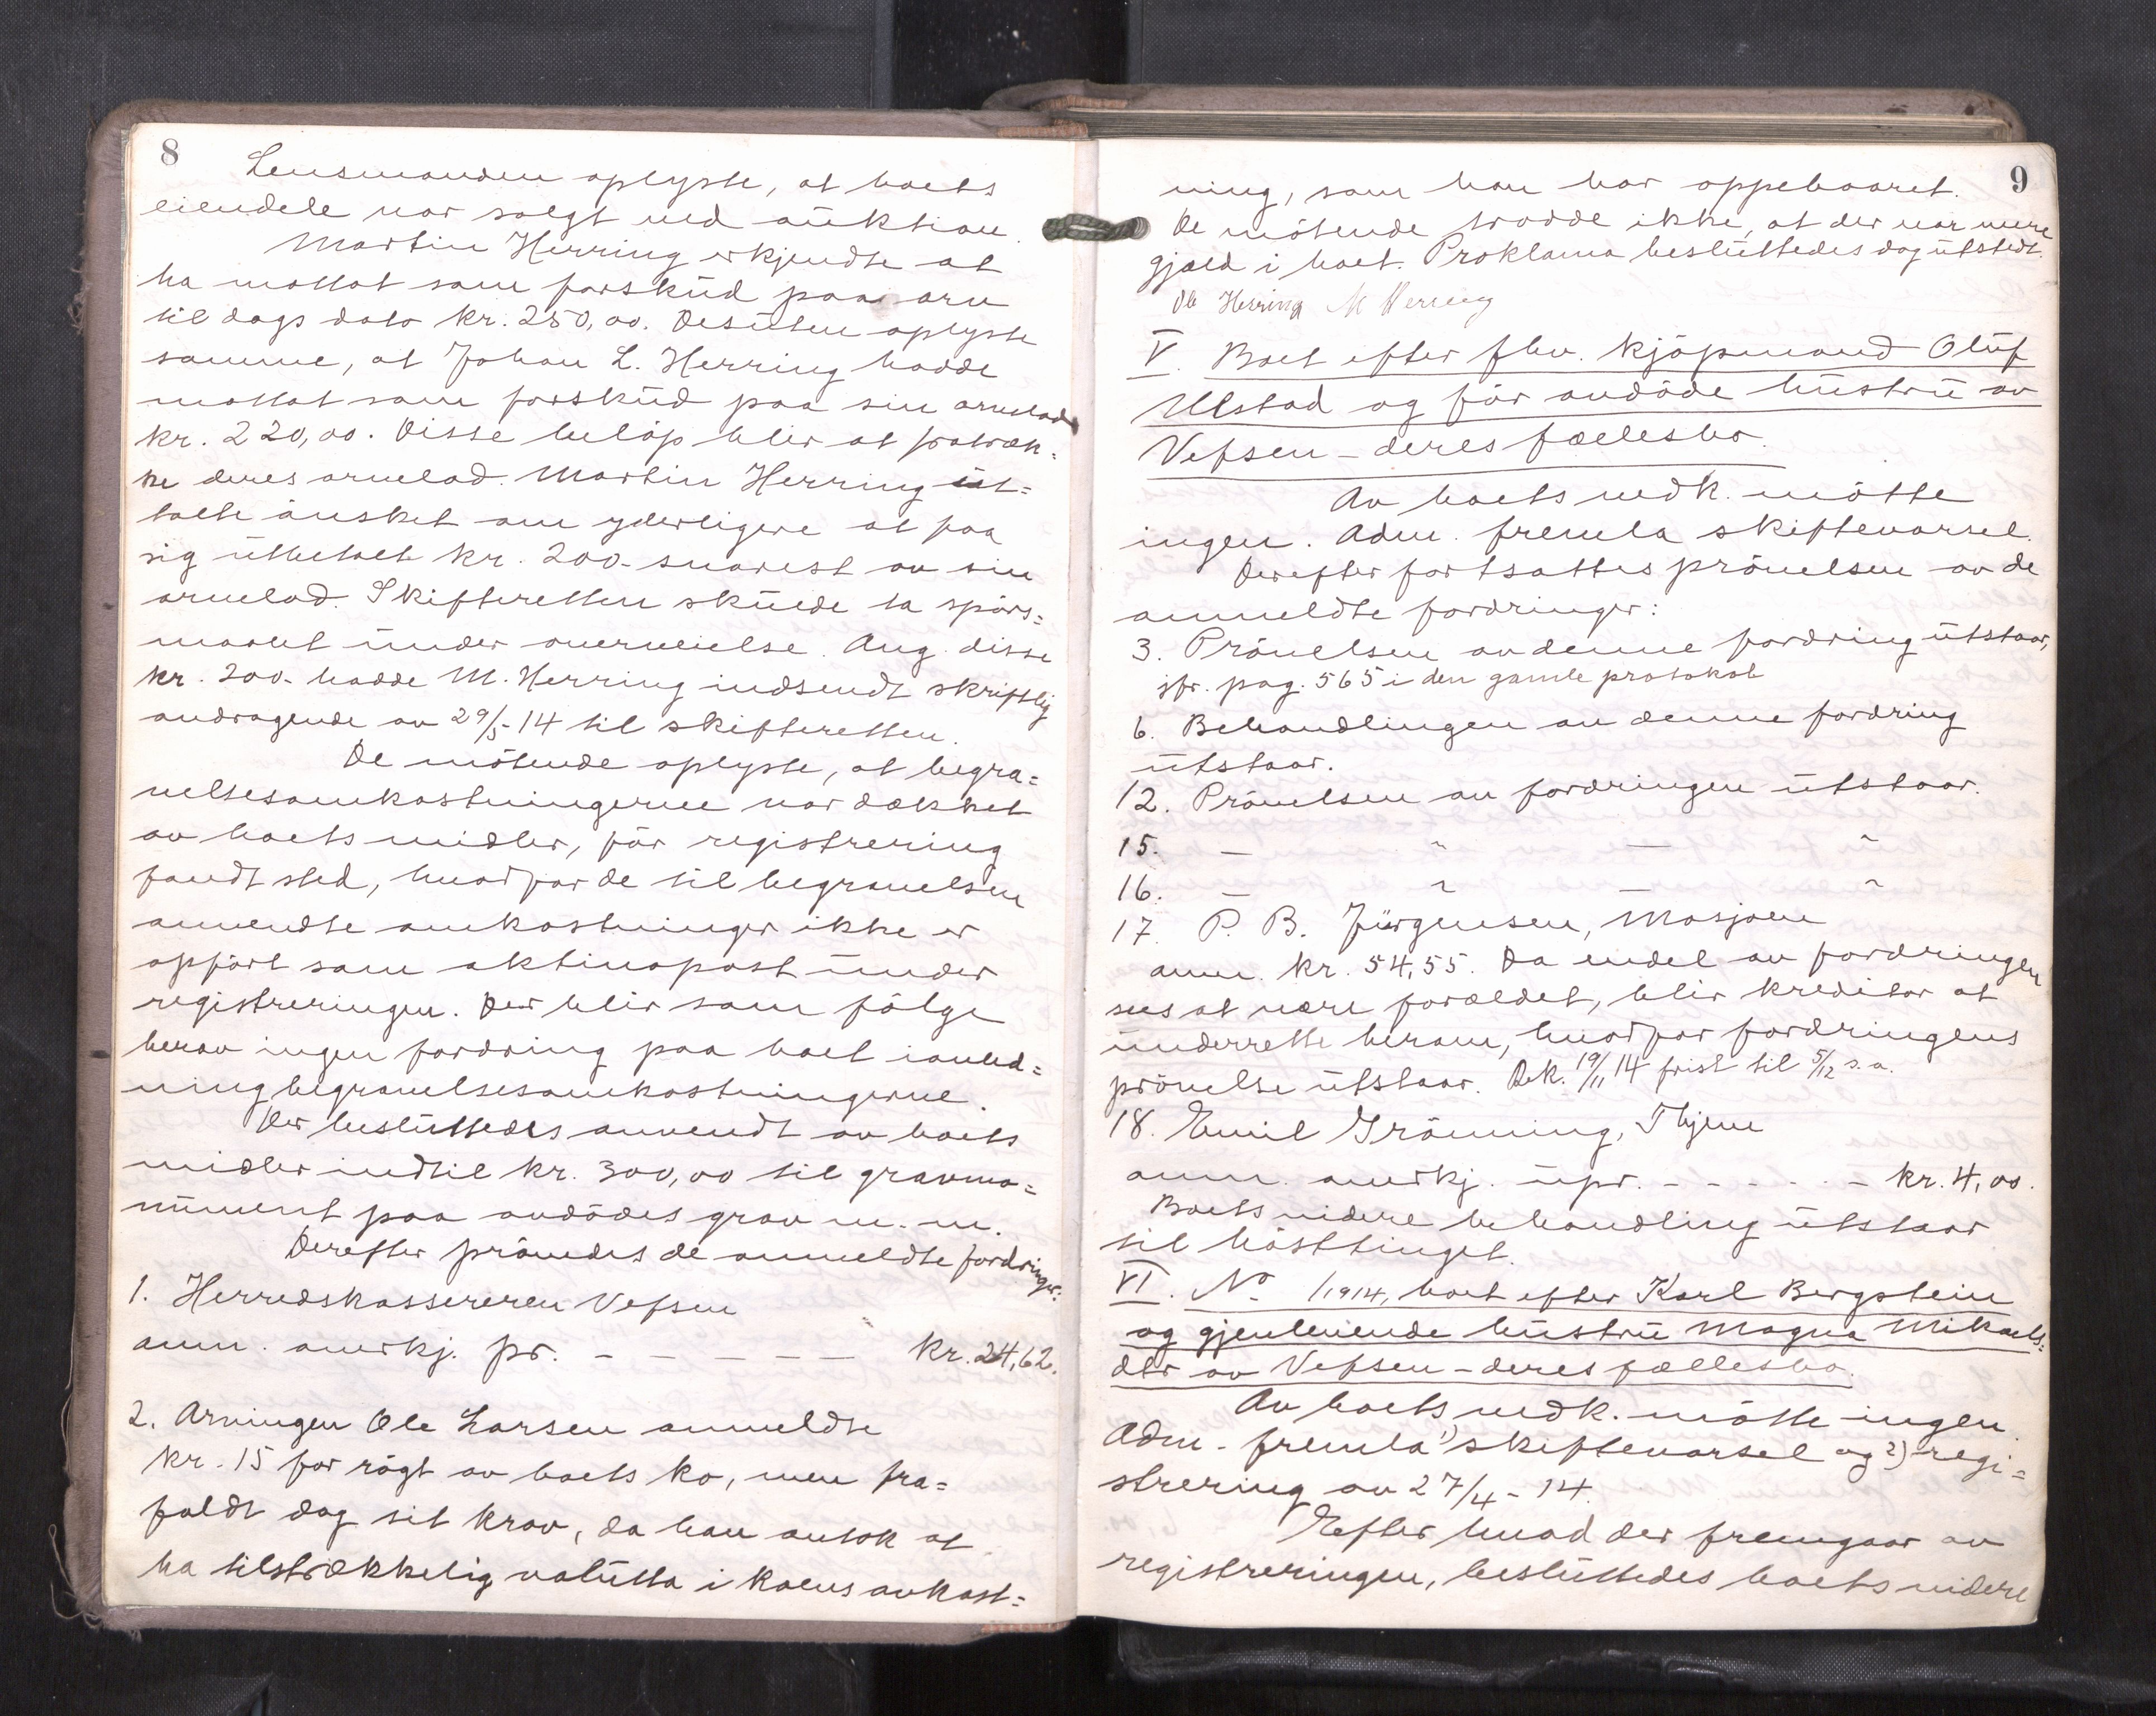 8
Lensmanden oplyste, at boets
eiendele var solgt ved auktion.
Martin Herring erkjendte at
ha mottat som forskud paa arv
til dags dato kr. 250,00. Desuten oplyste
samme, at Johan L. Herring hadde
mottat som forskud paa sin arvelod
kr. 220,00. Disse beløp blir at fratræk=
ke deres arvelod. Martin Herring ut=
talte ønsket om yderligere at faa
sig utbetalt kr. 200.- snarest av sin
arvelod. Skifteretten skulde ta spørs=
maalet under overveielse. Ang. disse
kr. 200.- hadde M. Herring indsendt skriftlig
andragende av 29/5-14 til skifteretten.
De møtende oplyste, at begra=
velsesomkostningerne var dækket
av boets midler, før registrering
fandt sted, hvorfor de til begravelsen
anvendte omkostninger ikke er
opført som aktivapost under
registreringen. Der blir som følge
herav ingen fordring paa boet i anled=
ning begravelsesomkostningerne.
Der besluttedes anvendt av boets
midler indtil kr. 300,00 til gravmo=
nument paa avdødes grav m. m.
Derefter prøvedes de anmeldte fordringer:
1. Herredskassereren Vefsen
anm. anerkj. pr. - - - - - - kr. 24,62.
2. Arvingen Ole Larsen anmeldte
kr. 15 for røgt av boets ko, men fra=
faldt dog sit krav, da han antok at
ha tilstrækkelig valutta i koens avkast=
9
ning, som han har oppebaaret.
De møtende trodde ikke, at der var mere
gjæld i boet. Proklama besluttedes dog utstedt.
Ole Herring M Herring
V. Boet efter fhv. kjøpmand Oluf
Ulstad og før avdøde hustru av
Vefsen - deres fællesbo.
Av boets vedk. møtte
ingen. Adm. fremla skiftevarsel.
Derefter fortsattes prøvelsen av de
anmeldte fordringer:
3. Prøvelsen av denne fordring utstaar,
jfr. pag. 565 i den gamle protokol
6. Behandlingen av denne fordring
utstaar.
12. Prøvelsen av fordringen utstaar.
15. — " — "
16. — " — "
17. P. B. Jürgensen, Mosjøen
anm. kr. 54,55. Da endel av fordringen
sees at være forældet, blir kreditor at
underrette herom, hvorfor fordringens
prøvelse utstaar. Bek. 19/11 14 frist til 5/12 s.a.
18. Emil Grønning, Thjem
anm. anerkj. upr. - - - - - - kr. 4,00.
Boets videre behandling utstaar
til høsttinget.
VI. No 1/1914, boet efter Karl Bergstein
og gjenlevende hustru Magna Mikaels=
dtr av Vefsen - deres fællesbo.
Av boets vedk. møtte ingen.
Adm. fremla 1) skiftevarsel og 2) regi=
strering av 27/4-14.
Efter hvad der fremgaar av
registreringen, besluttedes boets videre